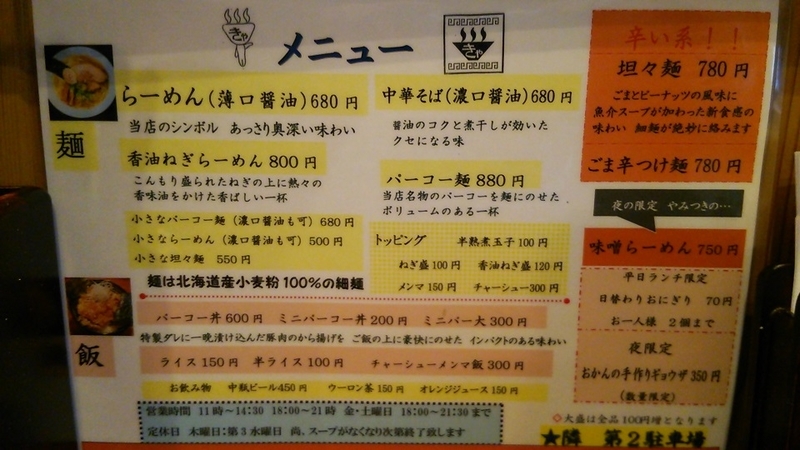 きゃ
メニュー
きゃ
麺
らーめん(薄口醤油)680円
当店のシンボル あっさり奥深い味わい
香油ねぎらーめん 800円
こんもり盛られたねぎの上に熱々の
香味油をかけた香ばしい一杯
小さなバーコー麺(濃口醤油も可)680円
小さならーめん(濃口醤油も可)500円
小さな坦々麺 550円
中華そば(濃口醤油)680円
醤油のコクと煮干しが効いた
クセになる味
バーコー麺 880円
当店名物のバーコーを麺にのせた
ボリュームのある一杯
トッピング 半熟煮玉子100円
ねぎ盛100円 香油ねぎ盛120円
メンマ150円 チャーシュー300円
麺は北海道産小麦粉100%の細麺
飯
バーコー丼600円 ミニバーコー丼200円 ミニバー大300円
特製ダレに一晩漬け込んだ豚肉のから揚げを ご飯の上に豪快にのせた インパクトのある味わい
ライス150円 半ライス100円 チャーシューメンマ飯300円
お飲み物 中瓶ビール450円 ウーロン茶150円 オレンジジュース150円
営業時間 11時~14:30 18:00~21時 金・土曜日 18:00~21:30まで
定休日 木曜日:第3水曜日 尚、スープがなくなり次第終了致します
辛い系!!
坦々麺 780円
ごまとピーナッツの風味に
魚介スープが加わった新食感の
味わい 細麺が絶妙に絡みます
ごま辛つけ麺 780円
夜の限定 やみつきの…
味噌らーめん 750円
平日ランチ限定
日替わりおにぎり 70円
お一人様 2個まで
夜限定
おかんの手作りギョウザ350円
(数量限定)
◇大盛は全品100円増となります
★隣 第2駐車場